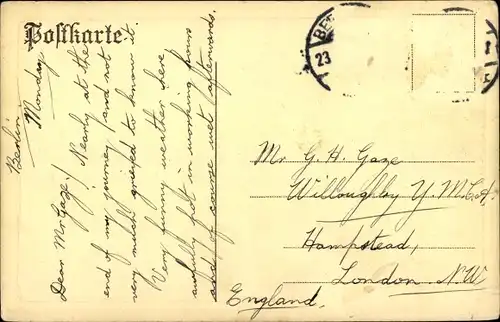 Postkarte
BE
23
Berlin
Monday
Dear Mr Gaze! Nearly at the
end of my journey (and not
very much grieved to know it.
Very funny weather here,
awfully hot in working hours
and of course wet afterwards.
Mr G. H. Gaze
Willoughby Y.M.C.A.
Hampstead,
London. N.W
England.